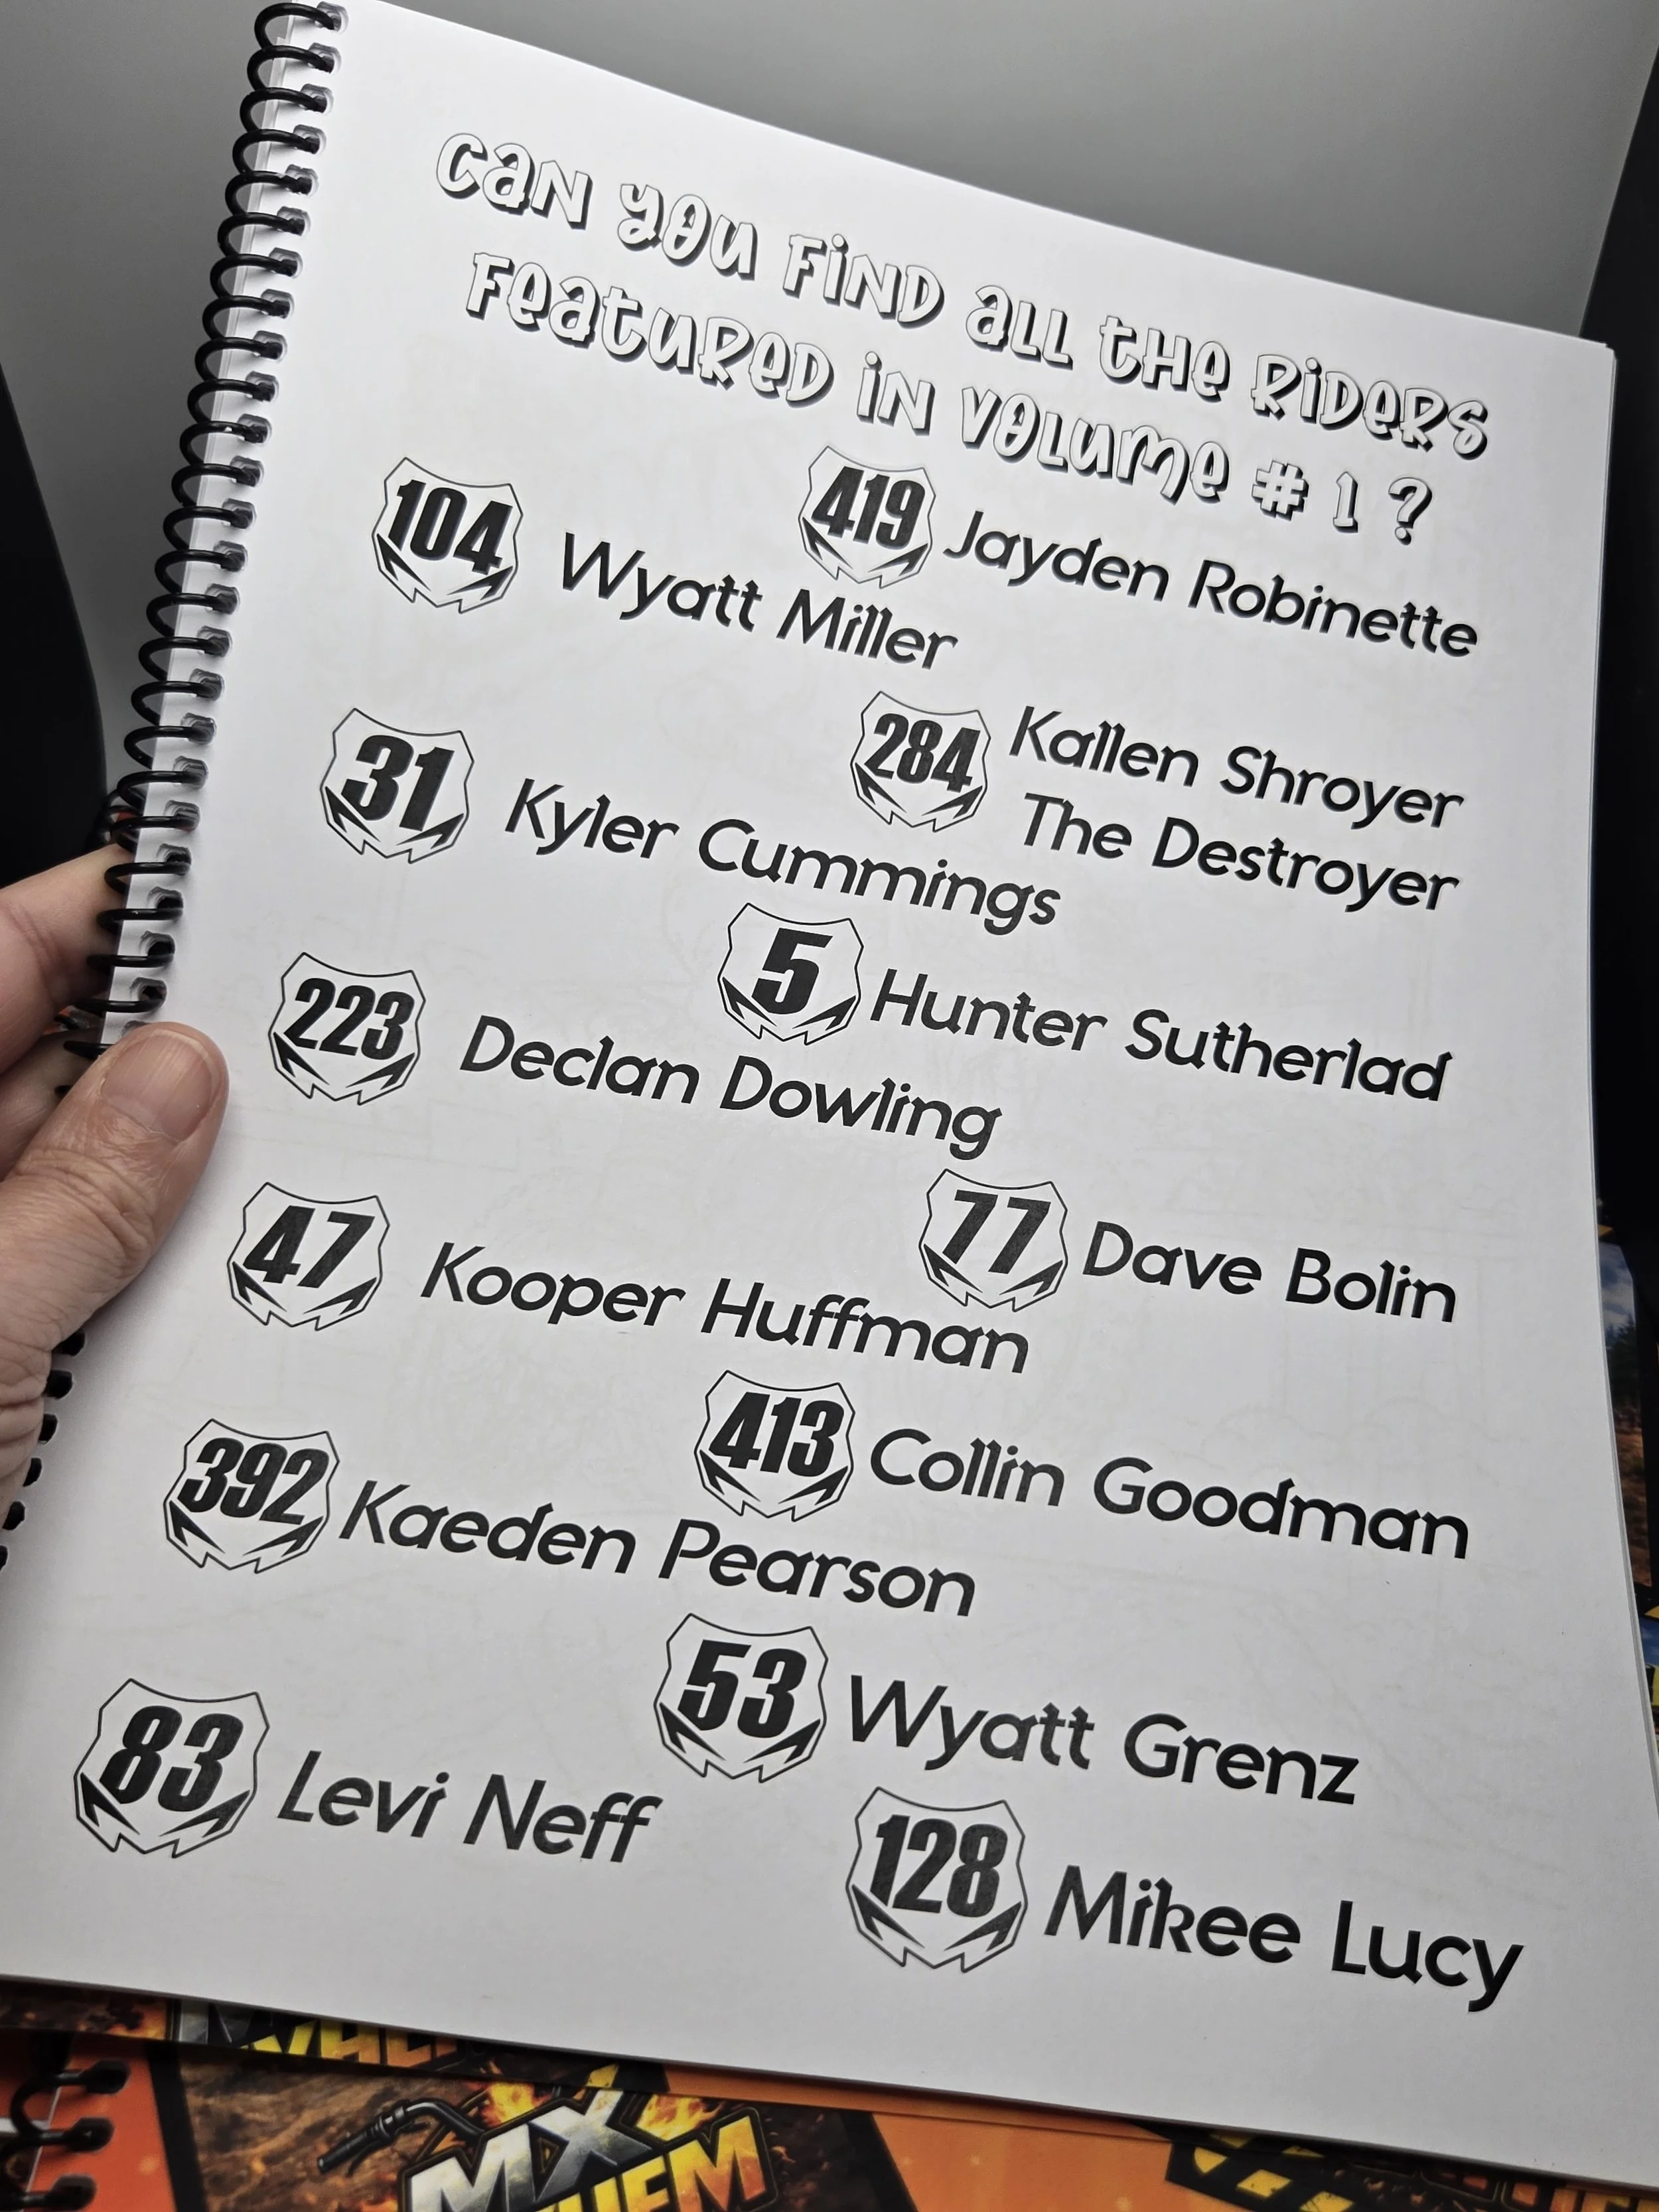 Can you find all the riders
featured in volume # 1 ?
104 Wyatt Miller
419 Jayden Robinette
31 Kyler Cummings
284 Kallen Shroyer
The Destroyer
5 Hunter Sutherlad
223 Declan Dowling
77 Dave Bolin
47 Kooper Huffman
413 Collin Goodman
392 Kaeden Pearson
53 Wyatt Grenz
83 Levi Neff
128 Mikee Lucy
MX